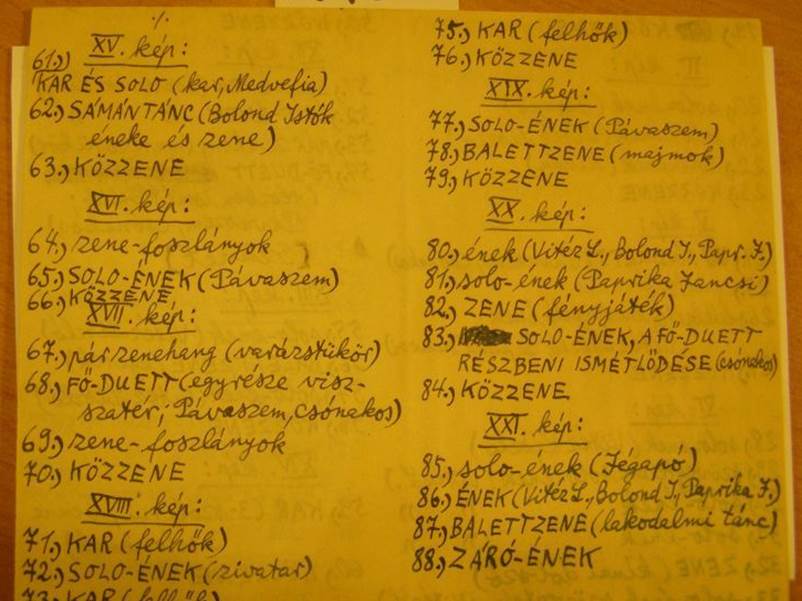 ·/·
XV. kép:
61.,)
KAR ÉS SOLO (kar, Medvefia)
62.,) SÁMÁNTÁNC (Bolond Istók
éneke és zene)
63.,) KÖZZENE
XVI. kép:
64.,) zene-foszlányok
65.,) SOLO-ÉNEK (Pávaszem)
66.,) KÖZZENE
XVII. kép:
67.,) pár zenehang (varázstükör)
68.,) FŐ-DUETT (egy része visz-
szatér; Pávaszem, csónakos)
69.,) zene-foszlányok
70.,) KÖZZENE
XVIII. kép:
71.,) KAR (felhők)
72.,) SOLO-ÉNEK (zivatar)
73.,) KAR (felhők)
75.,) KAR (felhők)
76.,) KÖZZENE
XIX. kép:
77.,) SOLO-ÉNEK (Pávaszem)
78.,) BALETTZENE (majmok)
79.,) KÖZZENE
XX. kép:
80.,) ének (Vitéz L., Bolond I., Papr. J.)
81.,) solo-ének (Paprika Jancsi)
82.,) ZENE (fényjáték)
83.,) SOLO-ÉNEK, A FŐ-DUETT
RÉSZBENI ISMÉTLŐDÉSE (csónakos)
84.,) KÖZZENE
XXI. kép:
85.,) solo-ének (Jégapó)
86.,) ÉNEK (Vitéz L., Bolond I., Paprika J.)
87.,) BALETTZENE (lakodalmi tánc)
88.,) ZÁRÓ-ÉNEK